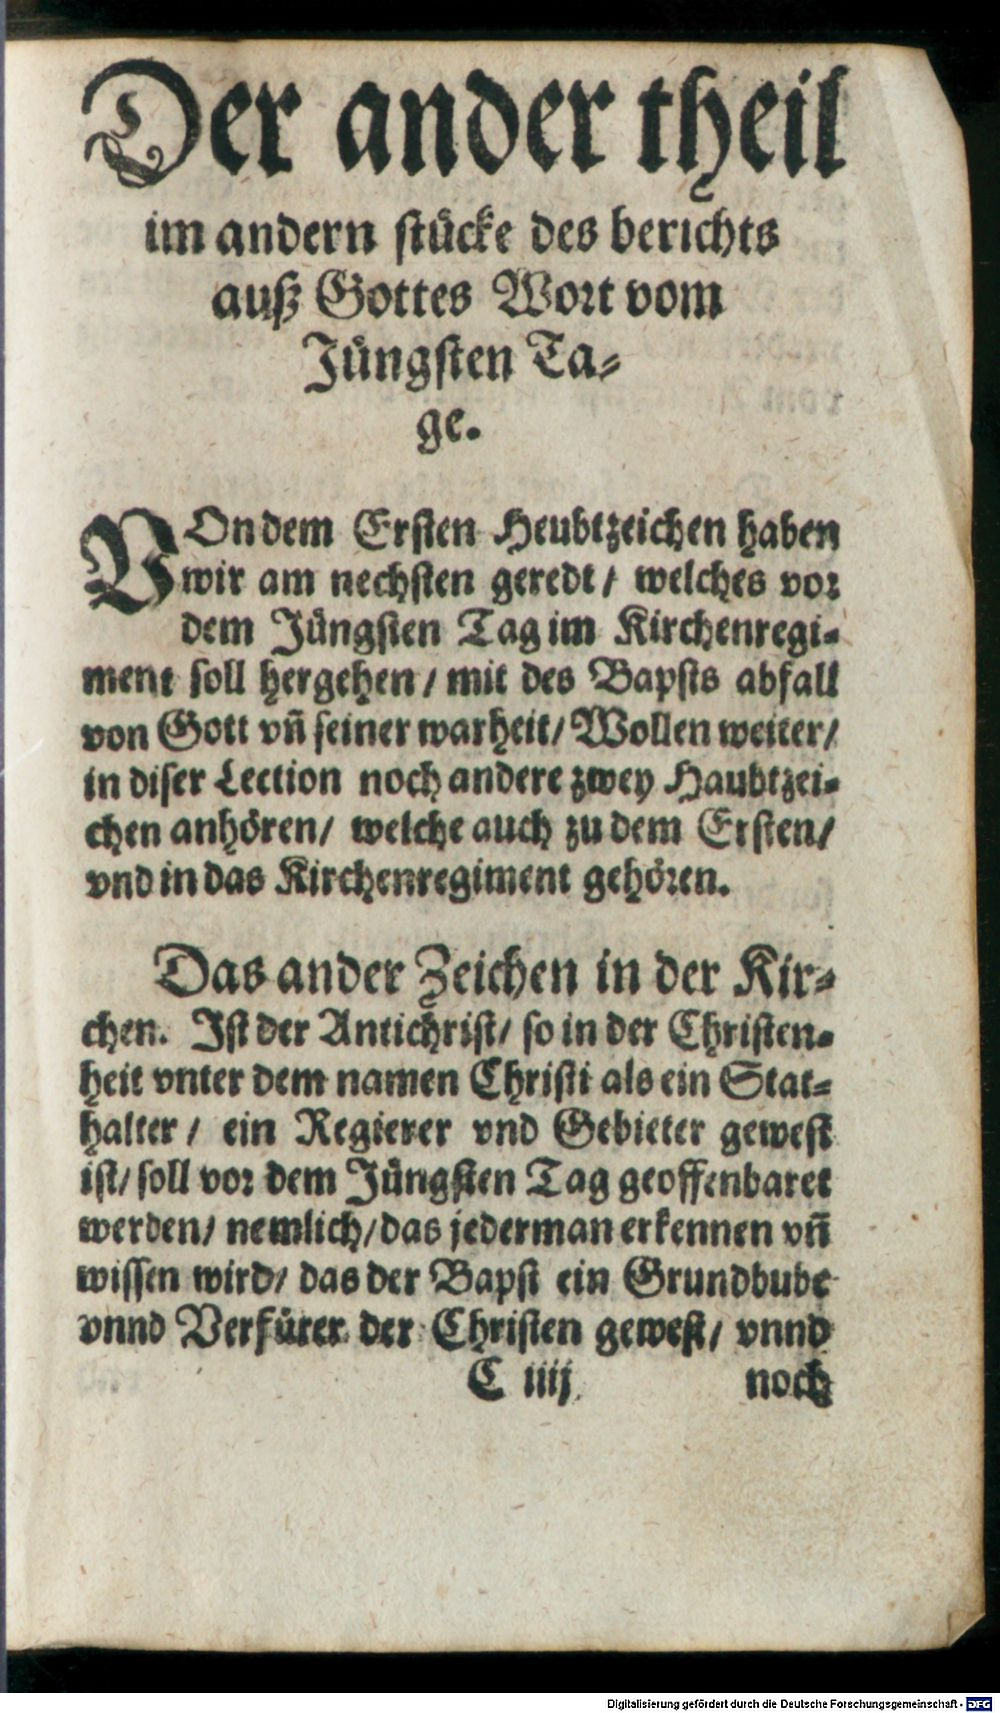 Der ander theil
im andern stücke des berichts
auß Gottes Wort vom
Jüngsten Ta-
ge.
VOn dem Ersten Heubtzeichen haben
wir am nechsten geredt / welches vor
dem Jüngsten Tag im Kirchenregi-
ment soll hergehen / mit des Bapsts abfall
von Gott vñ seiner warheit / Wollen weiter /
in diser Lection noch andere zwey Haubtzei-
chen anhören / welche auch zu dem Ersten /
vnd in das Kirchenregiment gehören.
Das ander Zeichen in der Kir-
chen. Ist der Antichrist / so in der Christen-
heit vnter dem namen Christi als ein Stat-
halter / ein Regierer vnd Gebieter gewest
ist / soll vor dem Jüngsten Tag geoffenbaret
werden / nemlich / das jederman erkennen vñ
wissen wird / das der Bapst ein Grundbube
vnnd Verfürer der Christen gewest / vnnd
C iiij noch
Digitalisierung gefördert durch die Deutsche Forschungsgemeinschaft - DFG